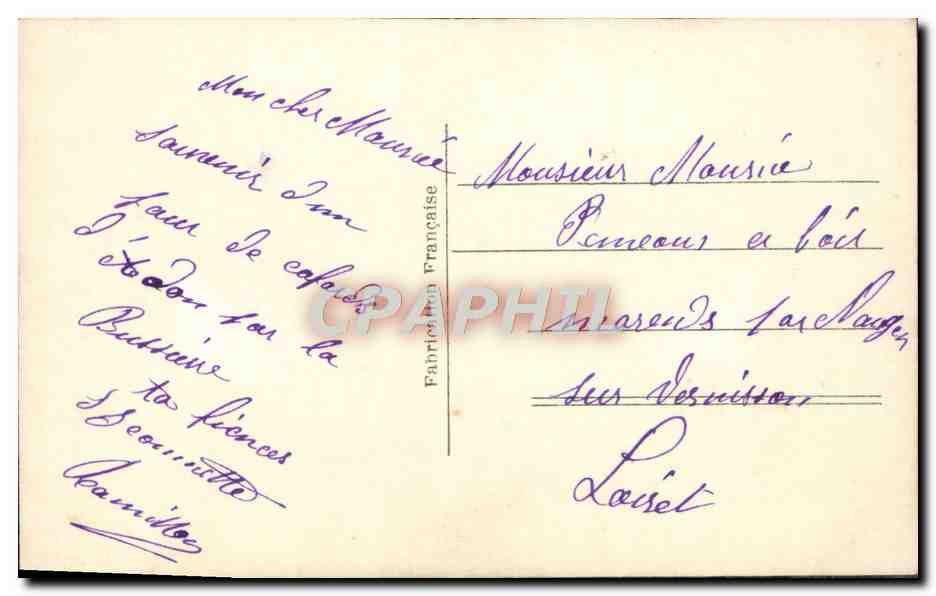 Mon cher Maurice
Souvenir d'un
jour de cafards
d'Ardon par la
Bussière
ta fiencés
Jeannette
Camillon
Fabrication Française
CPAPHIL
Monsieur Maurice
a bois
par Nogen
sur Vernisson
Loiret